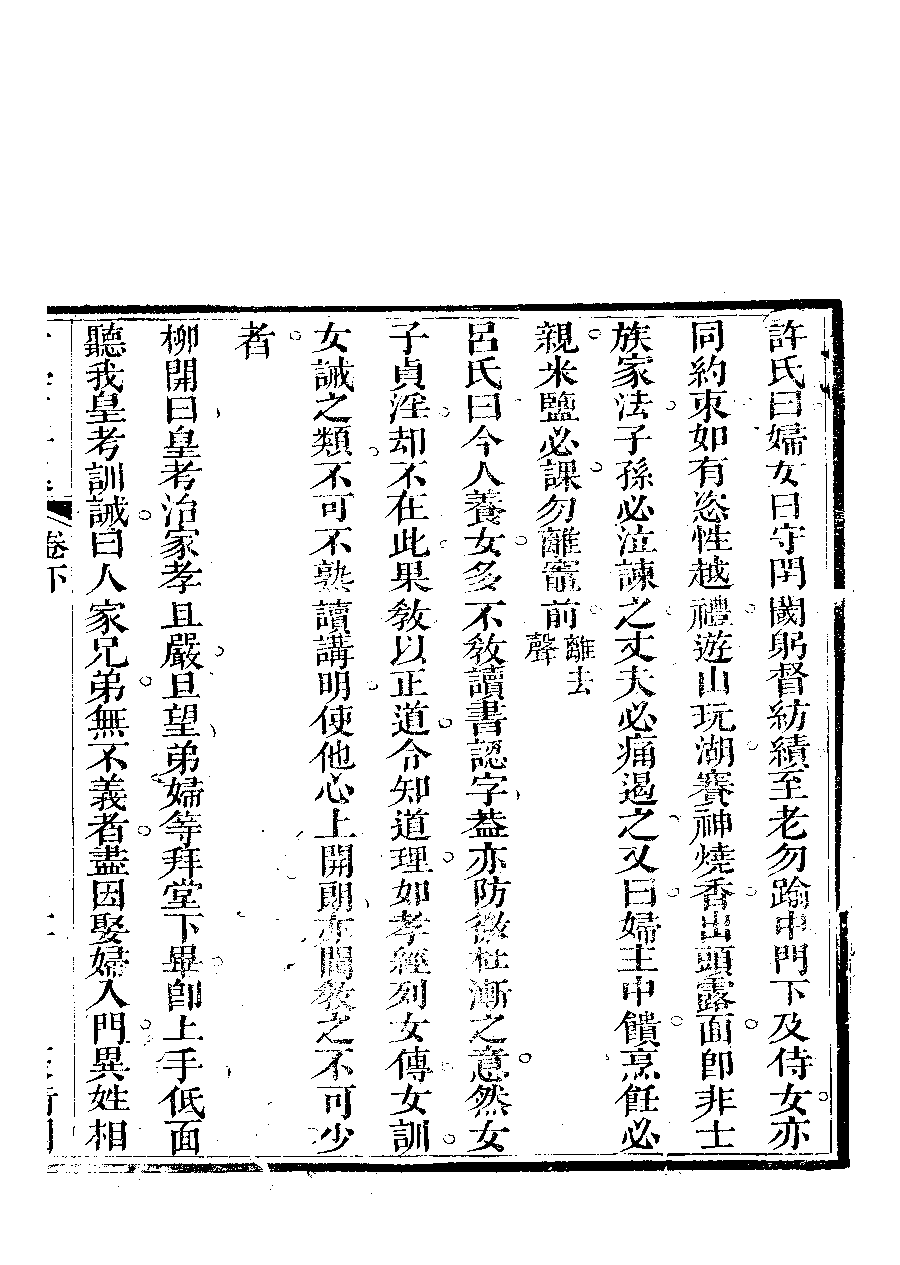 許氏曰婦女曰守閨閫躬督紡績至老勿踰中門下及侍女亦
同約束如有恣性越禮遊山玩湖賽神燒香出頭露面卽非士
族家法子孫必泣諫之丈夫必痛遏之又曰婦主中饋烹飪必
親米鹽必課勿離竈前離去聲
呂氏曰今人養女多不敎讀書認字葢亦防微杜漸之意然女
子貞淫却不在此果敎以正道令知道理如孝經列女傳女訓
女誡之類不可不熟讀講明使他心上開朗亦閫敎之不可少
者
柳開曰皇考治家孝且嚴旦望弟婦等拜堂下畢卽上手低面
聽我皇考訓誡曰人家兄弟無不義者盡因娶婦入門異姓相
卷下